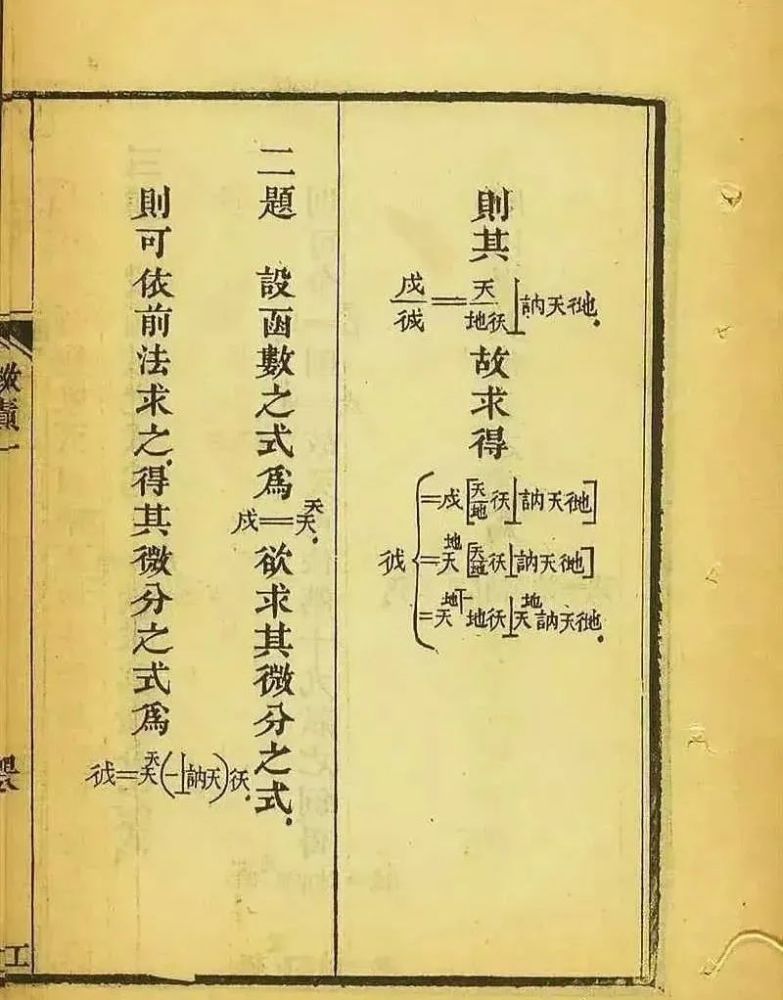 則其
戌/彳戌=天/地彳天⊥訥天彳地.
故求得
彳戌{=戌[天/地彳天⊥訥天彳地]
=天^地[天/地彳天⊥訥天彳地]
=天^地丅一地彳天⊥天^地訥天彳地.
二題　設函數之式爲戌=天^天.欲求其微分之式.
則可依前法求之.得其微分之式爲彳戌=天^天(一⊥訥天)彳天.
積一
工